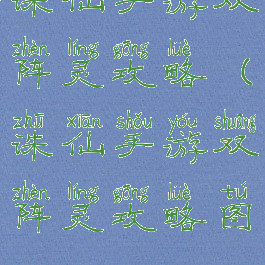 诛仙手游双
zhèn líng gōng lüè
阵灵攻略（
zhū xiān shǒu yóu shuāng
诛仙手游双
zhèn líng gōng lüè tú
阵灵攻略图